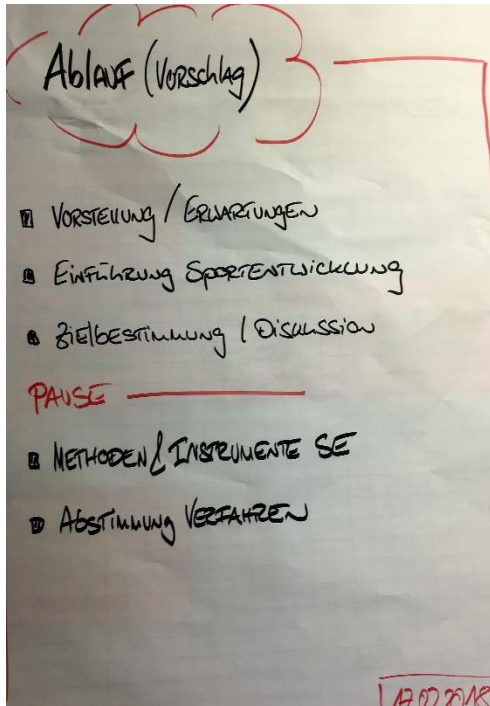 Ablauf (Vorschlag)
Vorstellung / Erwartungen
Einführung Sportentwicklung
Zielbestimmung / Diskussion
PAUSE
Methoden & Instrumente SE
Abstimmung Verfahren
17.02.2018